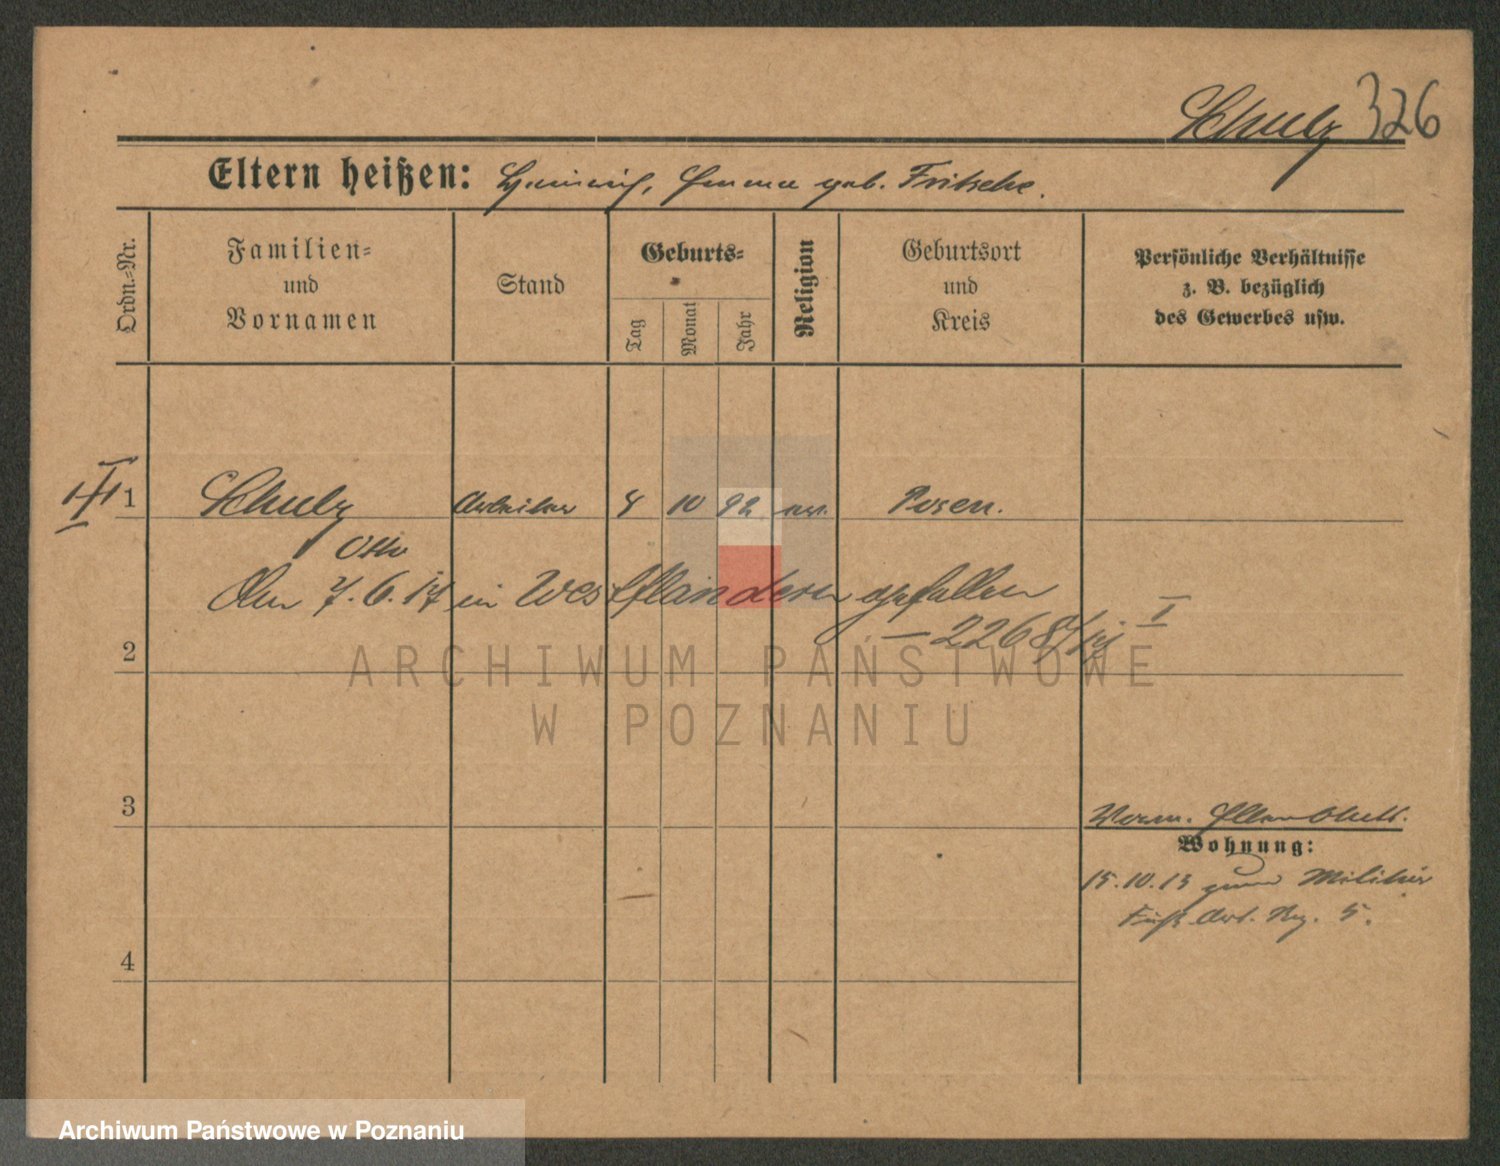 Schulz 326
Eltern heißen: Heinrich, Emma geb. Fritsche.
Ordn.-Nr.
Familien-
und
Vornamen
Stand
Geburts-
Tag
Monat
Jahr
Religion
Geburtsort
und
Kreis
Persönliche Verhältnisse
z. B. bezüglich
des Gewerbes usw.
1 Schulz Arbeiter 8 10 92 ev. Posen.
Otto
Am 7.6.17 in Westflandern gefallen
I
2
ARCHIWUM PAŃSTWOWE
W POZNANIU
3
Wohnung:
15.10.13 zum Militär
Fuß. Art. Rg. 5.
4
Archiwum Państwowe w Poznaniu